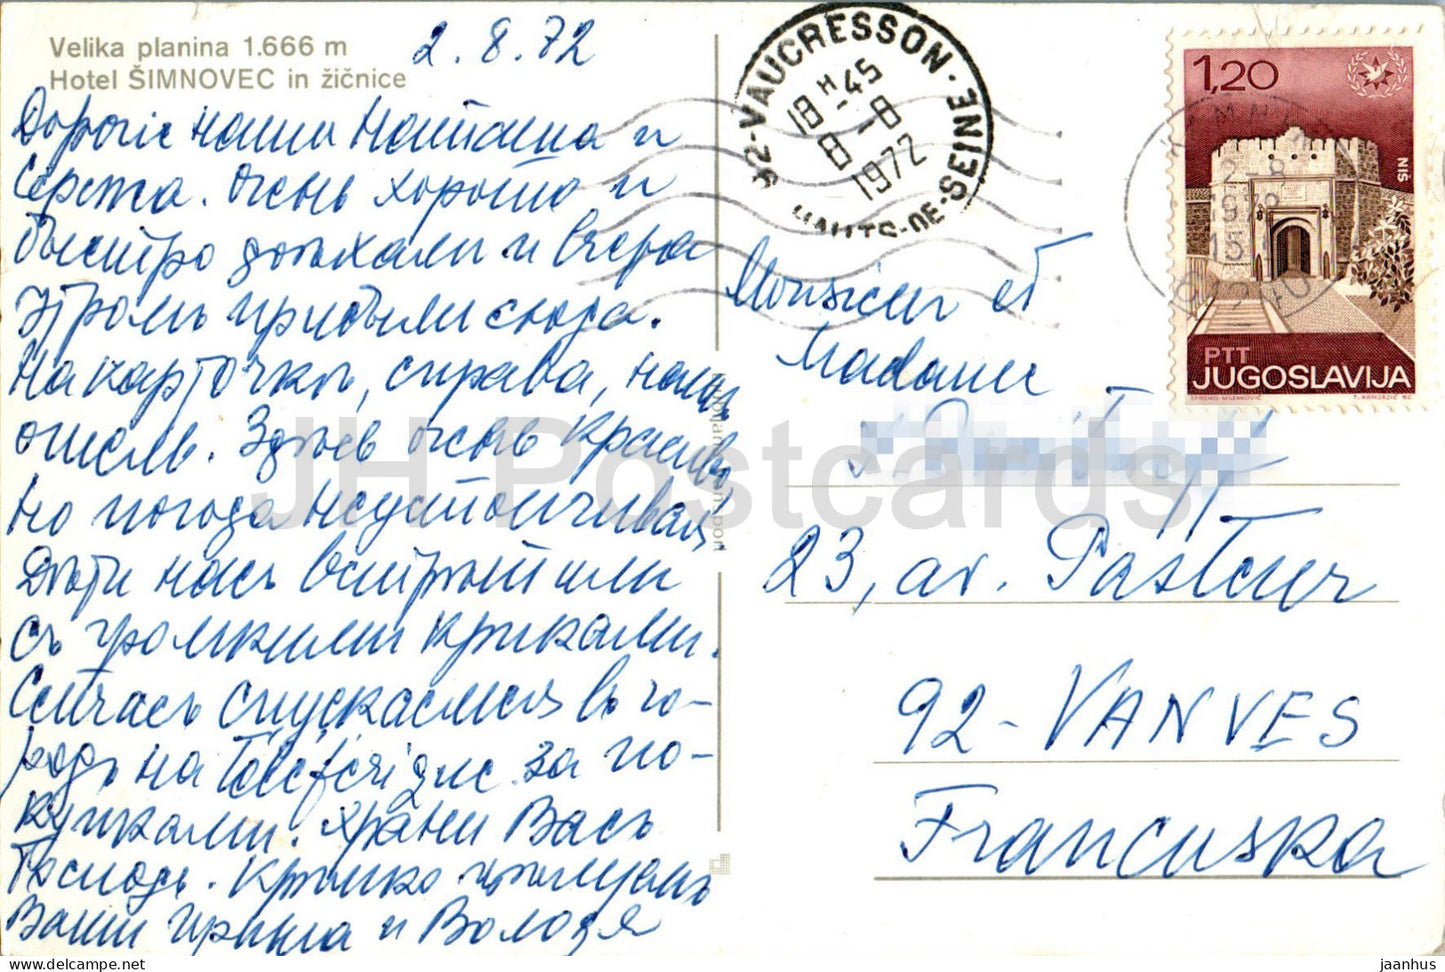 Velika planina 1.666 m
Hotel ŠIMNOVEC in žičnice
2.8.72
Дорогіе наши Наташа и
Сережа. Очень хорошо и
быстро доѣхали и вчера
утромъ прибыли сюда.
На карточкѣ, справа, нашъ
отель. Здѣсь очень красиво,
но погода неустойчивая.
Дѣти насъ встрѣтили
съ громкими криками.
Сейчасъ спускаемся въ го-
родъ на Téléférique за по-
купками. Храни Васъ
Господь. Крѣпко цѣлуемъ
Ваши Ирина и Володя
92-VAUCRESSON
18 H 45
8-8
1972
HAUTS-DE-SEINE
1,20
NIŠ
2-8
PTT
JUGOSLAVIJA
Monsieur et
Madame
23, av. Pasteur
92-VANVES
Francuska
JH Postcards
jaanhus